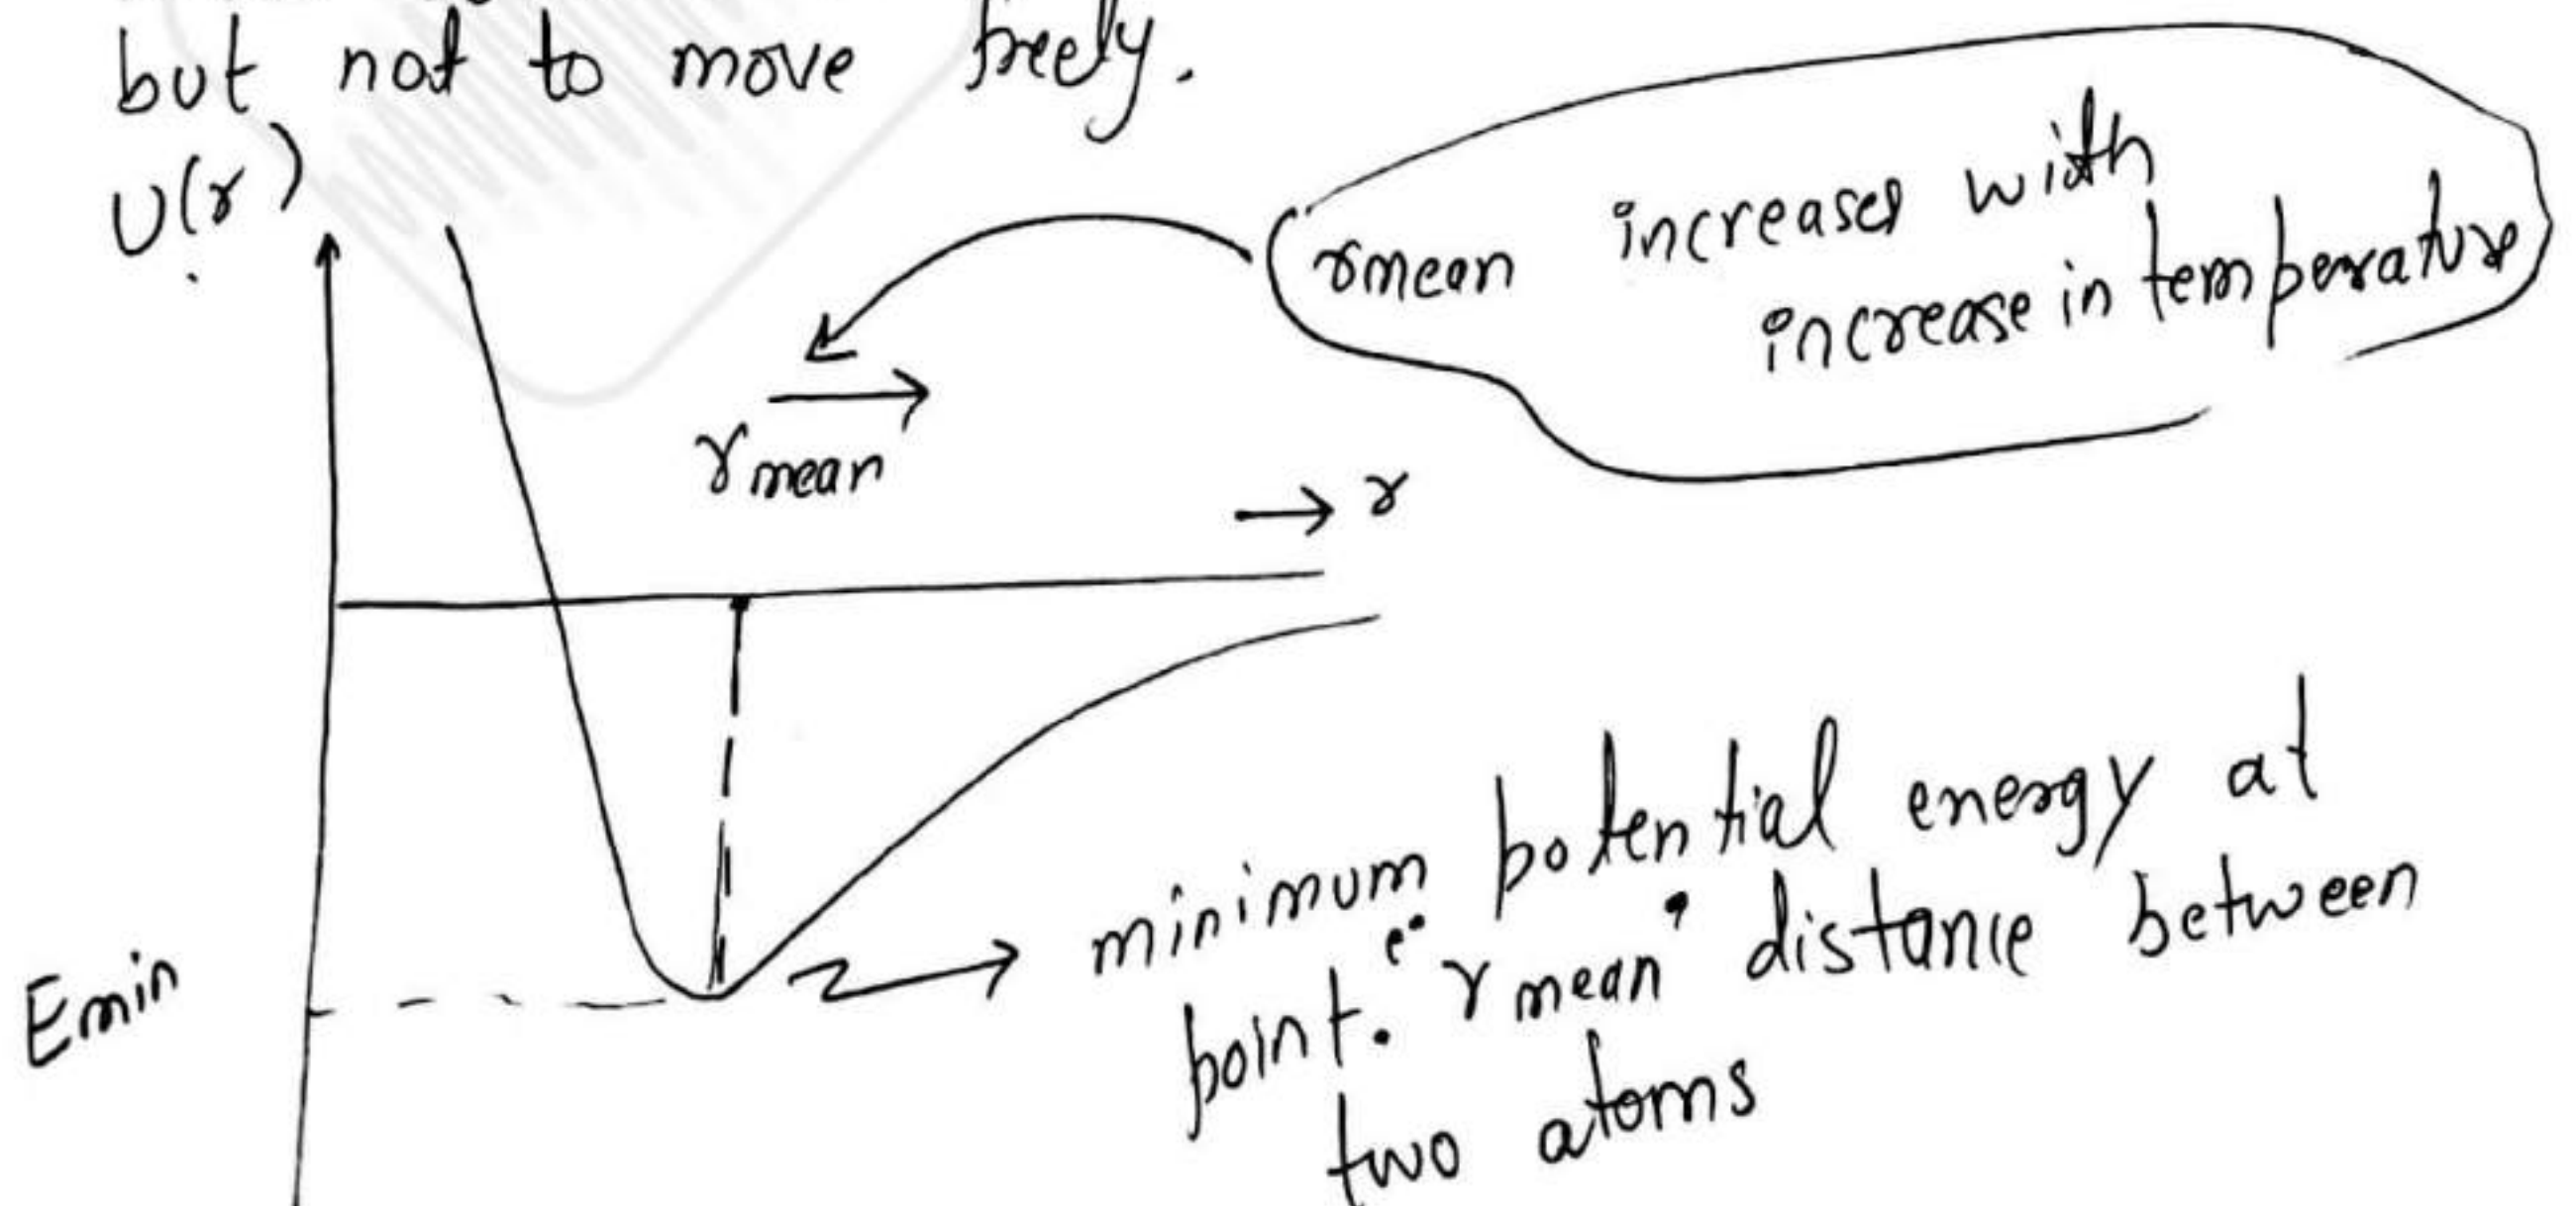 but not to move freely.
U(r)
rmean increases with
increase in temperature
rmean
r
Emin
minimum potential energy at
point. "rmean" distance between
two atoms